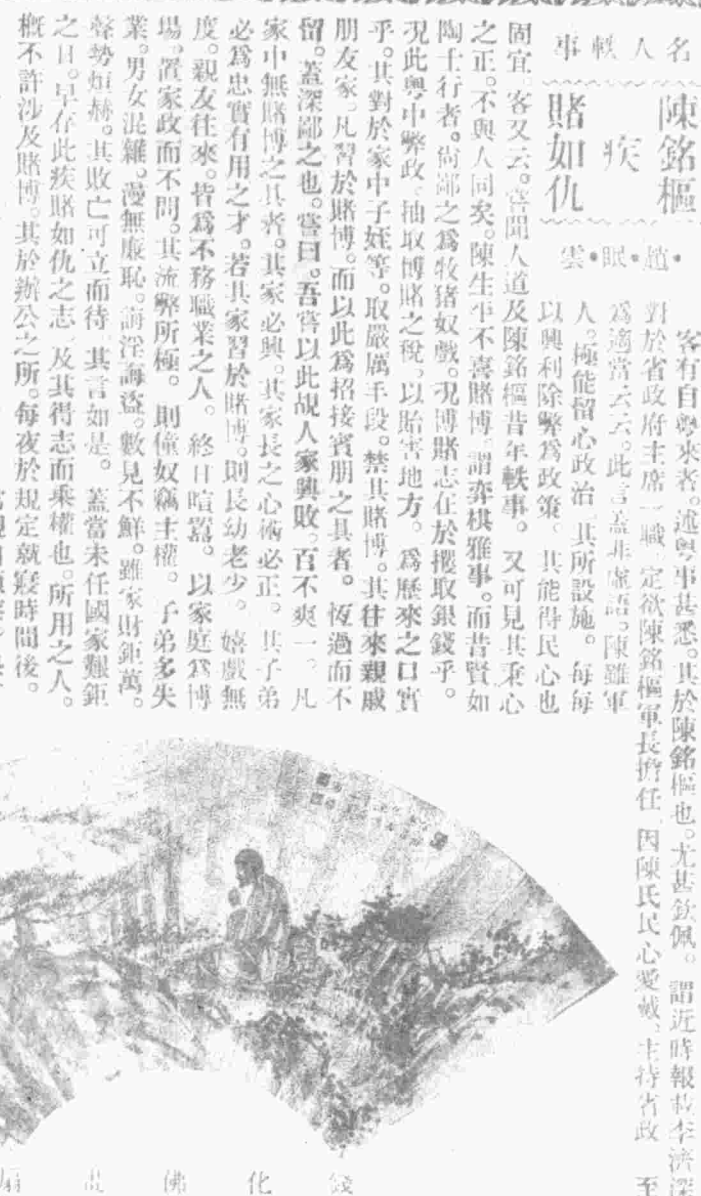 名人軼事
陳銘樞
疾
賭如仇
•趙•眠•雲
客有自粵來者。述粵事甚悉。其於陳銘樞也。尤甚欽佩。謂近時報載李濟深
對於省政府主席一職。定欲陳銘樞軍長擔任。因陳氏民心愛戴、主持省政 至
爲適當云云。此言蓋非虛語。陳雖軍
人。極能留心政治。其所設施。每每
以興利除弊爲政策。其能得民心也
固宜。客又云。嘗聞人道及陳銘樞昔年軼事。又可見其秉心
之正。不與人同矣。陳生平不喜賭博。謂弈棋雅事。而昔賢如
陶士行者。尙鄙之爲牧猪奴戲。况博賭志在於攫取銀錢乎。
况此粵中弊政。抽取博賭之稅。以貽害地方。爲歷來之口實
乎。其對於家中子姪等。取嚴厲手段。禁其賭博。其往來親戚
朋友家。凡習於賭博。而以此爲招接賓朋之具者。恆過而不
留。蓋深鄙之也。嘗曰。吾嘗以此覘人家興敗。百不爽一。凡
家中無賭博之具者。其家必興。其家長之心術必正。其子弟
必爲忠實有用之才。若其家習於賭博。則長幼老少。嬉戲無
度。親友往來。皆爲不務職業之人。終日喧囂。以家庭爲博
場。置家政而不問。其流弊所極。則僮奴竊主權。子弟多失
業。男女混雜。漫無廉恥。誨淫誨盜。數見不鮮。雖家財鉅萬。
聲勢烜赫。其敗亡可立而待。其言如是。蓋當未任國家艱鉅
之日。早存此疾賭如仇之志。及其得志而乘權也。所用之人。
槪不許涉及賭博。其於辦公之所。每夜於規定就寢時間後。
錢化佛畫扇